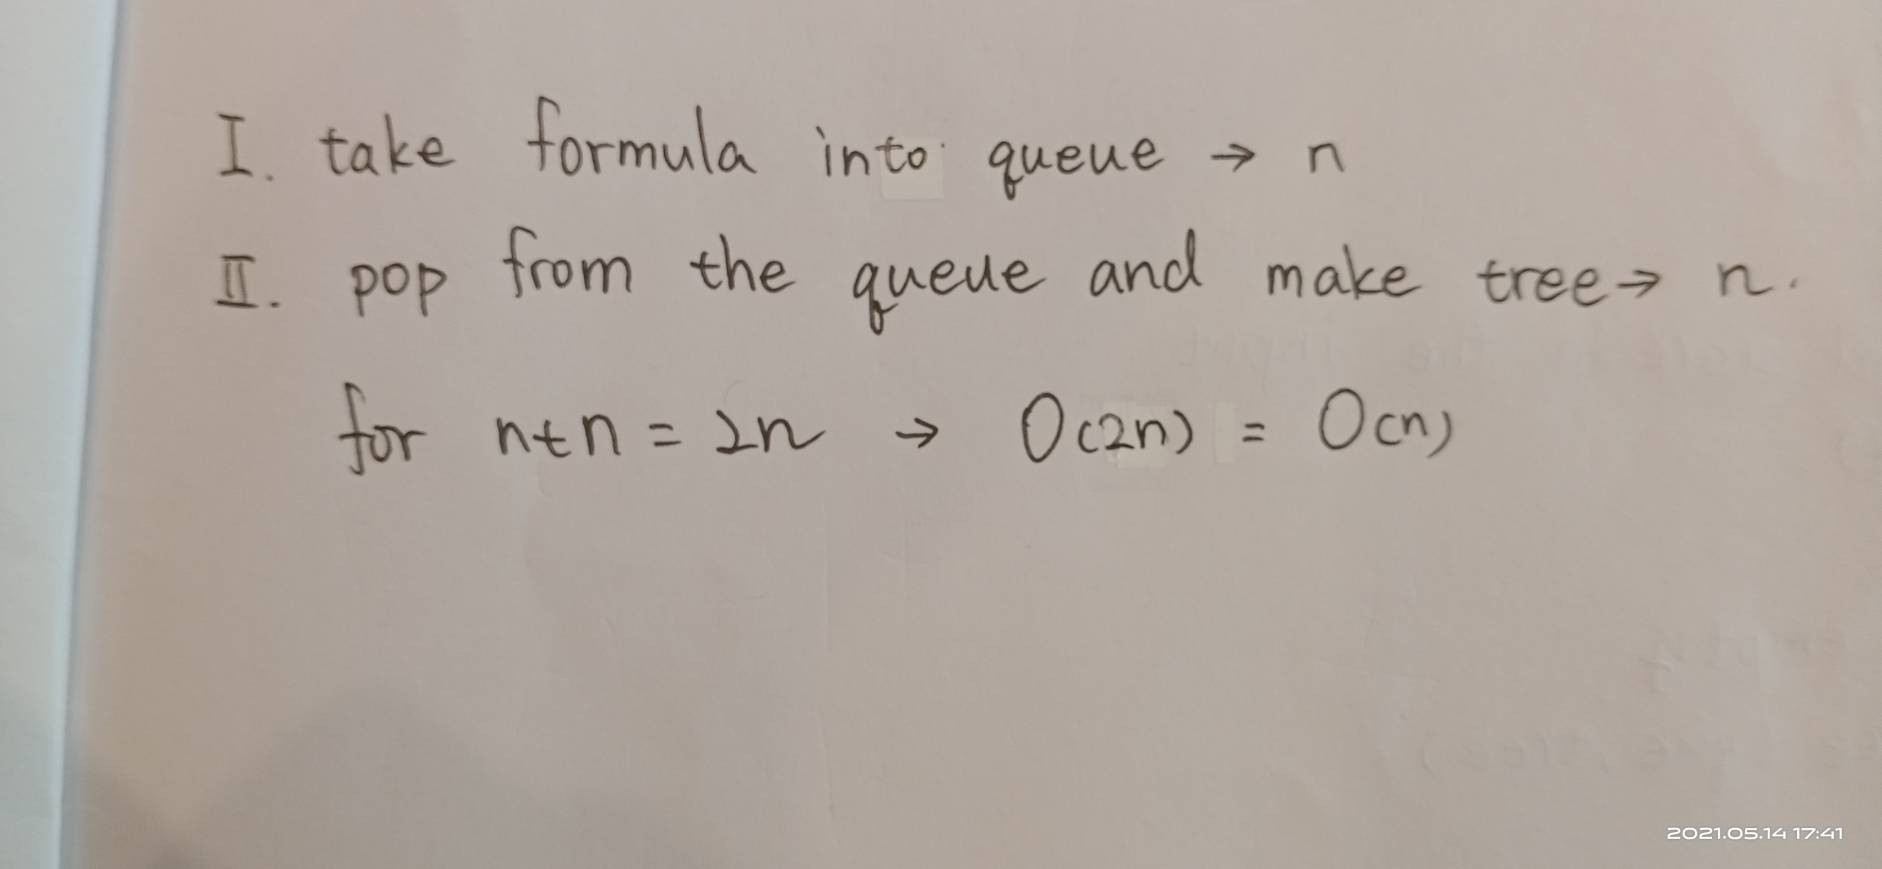 I. take formula into queue → n
II. pop from the queue and make tree → n.
for n+n = 2n → O(2n) = O(n)
2021.05.14 17:41